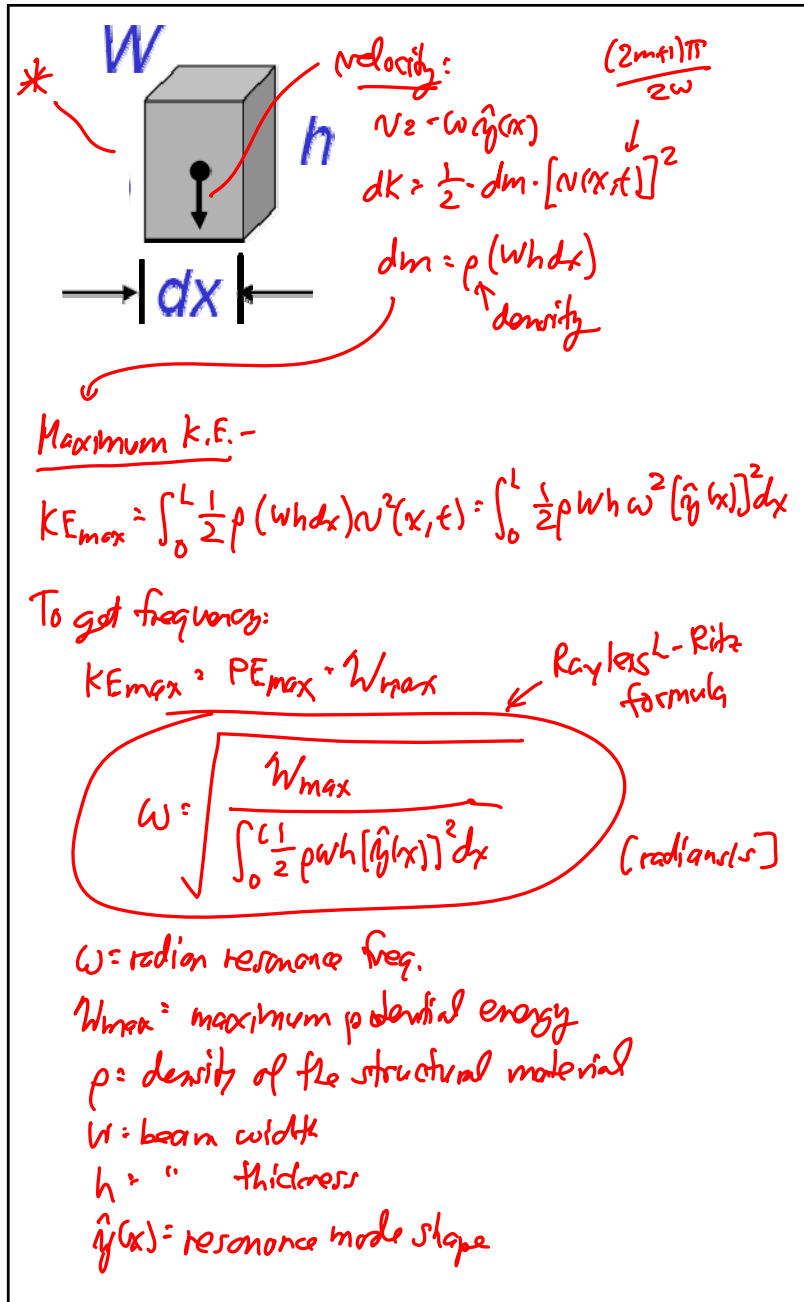 W
*
h
dx
velocity:
v = -ωŷ(x)
(2n+1)π / 2ω
dK = 1/2 · dm · [v(x,t)]²
dm = ρ(Whdx)
density
Maximum K.E. -
KE_max = ∫₀ᴸ 1/2 ρ(Whdx)v²(x,t) = ∫₀ᴸ 1/2 ρWhω²[ŷ(x)]²dx
To get frequency:
KE_max = PE_max = W_max
Rayleigh-Ritz
formula
ω = √(W_max / ∫₀ᴸ 1/2 ρWh[ŷ(x)]²dx)
[radians/s]
ω = radian resonance freq.
W_max = maximum potential energy
ρ = density of the structural material
W = beam width
h = " thickness
ŷ(x) = resonance mode shape